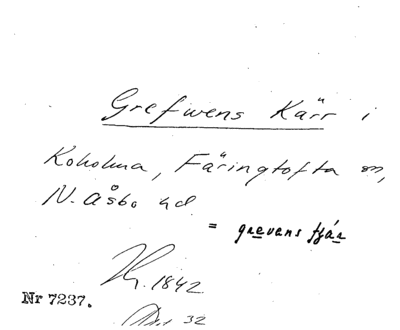 Grefwens Kärr i
Koholma, Färingtofta sn,
N. Åsbo hd
= grevans tjär
1842
Nr 7237.
32